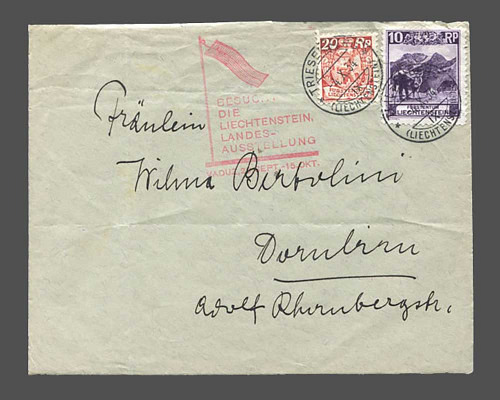 20 RP
10 RP
FÜRSTENTUM
LIECHTENSTEIN
TRIESEN
(LIECHTEN
(LIECHTEN
BESUCHT
DIE
LIECHTENSTEIN.
LANDES-
AUSSTELLUNG
VADUZ SEPT.-15.OKT.
Fräulein
Wilma Bertolini
Dornbirn
Adolf Rhombergstr.